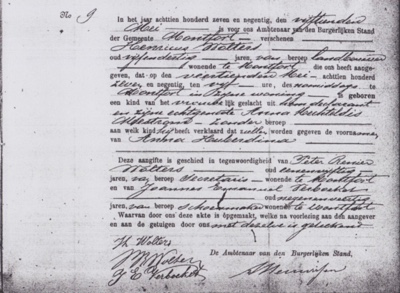 No 9
In het jaar achttien honderd zeven en negentig, den vijftienden
Mei is voor ons Ambtenaar van den Burgerlijken Stand
der Gemeente Montfort verschenen
Henricus Wolters
oud vijfendertig jaren, van beroep landbouwer
wonende te Montfort die ons heeft aange-
geven, dat op den veertienden Mei achttien honderd
zeven en negentig, ten vijf ure, des namiddags te
Montfort in zijne woning is geboren
een kind van het vrouwelijk geslacht uit hem declarant
en zijne echtgenoote Anna Mechtildis
zonder beroep
aan welk kind hij heeft verklaard dat zullen worden gegeven de voornamen
van Anna Huberdina
Deze aangifte is geschied in tegenwoordigheid van Peter Renier
Wolters oud eenenvijftig
jaren, van beroep Secretaris wonende te Montfort
en van Joannes Emmanuel Verbocket
oud negenenveertig
jaren, van beroep schoenmaker wonende te Montfort
Waarvan door ons deze akte is opgemaakt, welke na voorlezing aan den aangever
en aan de getuigen door ons met dezelve is geteekend
H. Wolters
Wolters
J E Verbocket
De Ambtenaar van den Burgerlijken Stand,